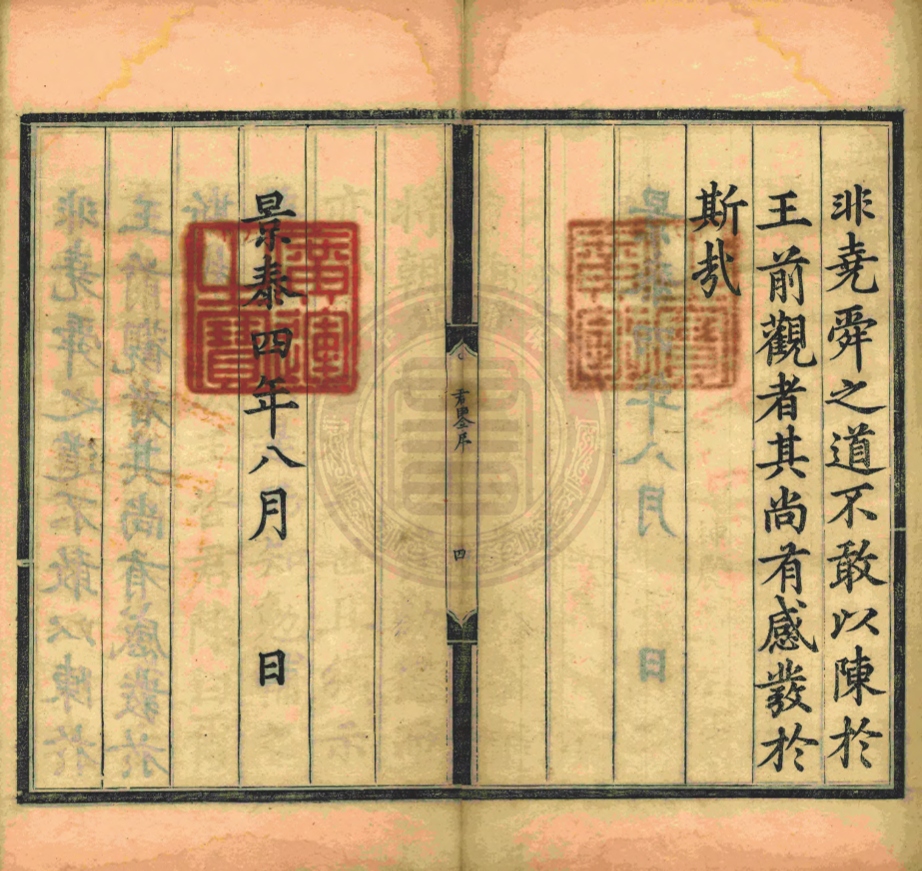 非堯舜之道不敢以陳於
王前觀者其尚有感發於
斯哉
四
景泰四年八月 日